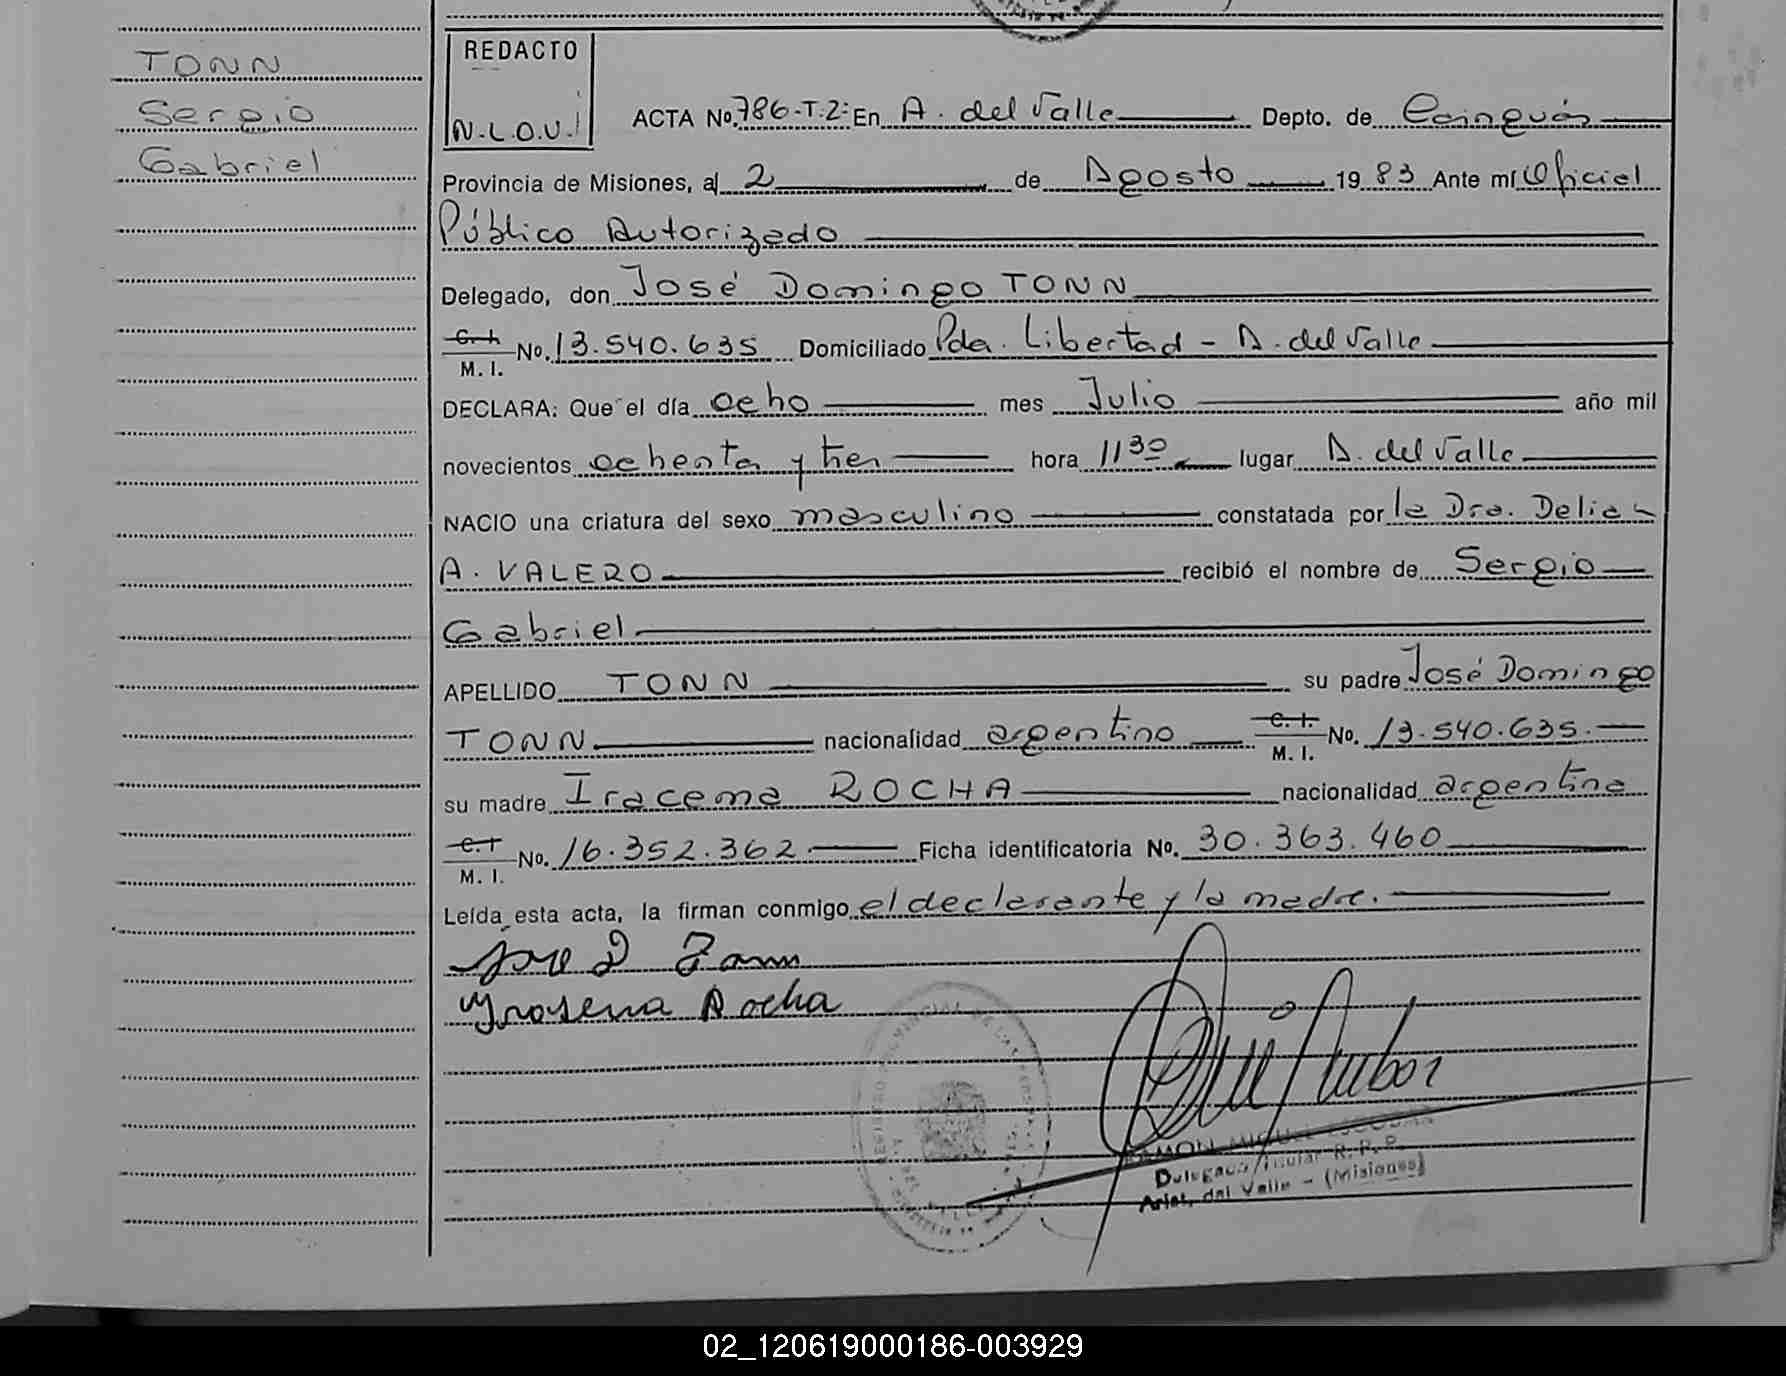 TONN
Sergio
Gabriel
REDACTO
N.L.O.V.
ACTA No. 786-T.2: En A. del Valle Depto. de Cainguás
Provincia de Misiones, al 2 de Agosto 19 83 Ante mí Oficial
Público Autorizado
Delegado, don José Domingo TONN
C. I. M. I. No. 13.540.635 Domiciliado Pda. Libertad - A. del Valle
DECLARA: Que el día ocho mes Julio año mil
novecientos ochenta y tres hora 11 30 lugar A. del Valle
NACIO una criatura del sexo masculino constatada por la Dra. Delia
A. VALERO recibió el nombre de Sergio
Gabriel
APELLIDO TONN su padre José Domingo
TONN nacionalidad argentino C. I. M. I. No. 13.540.635.
su madre Iracema ROCHA nacionalidad argentina
C. I. M. I. No. 16.352.362 Ficha identificatoria No. 30.363.460
Leída esta acta, la firman conmigo el declarante y la madre.
Jose D Tonn
Irasema Rocha
RAMON MIGUEL
Delegado Titular R. P. P.
Arist. del Valle - (Misiones)
02_120619000186-003929